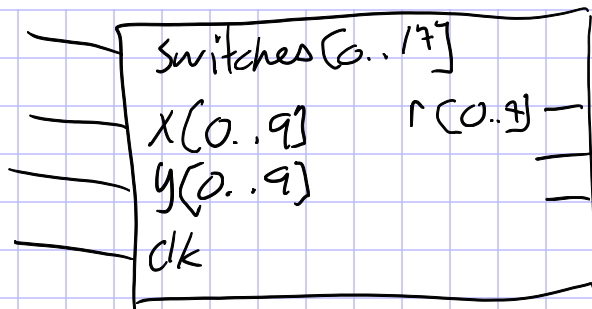 switches[0..17]
x[0..9] r[0..9]
y[0..9]
clk